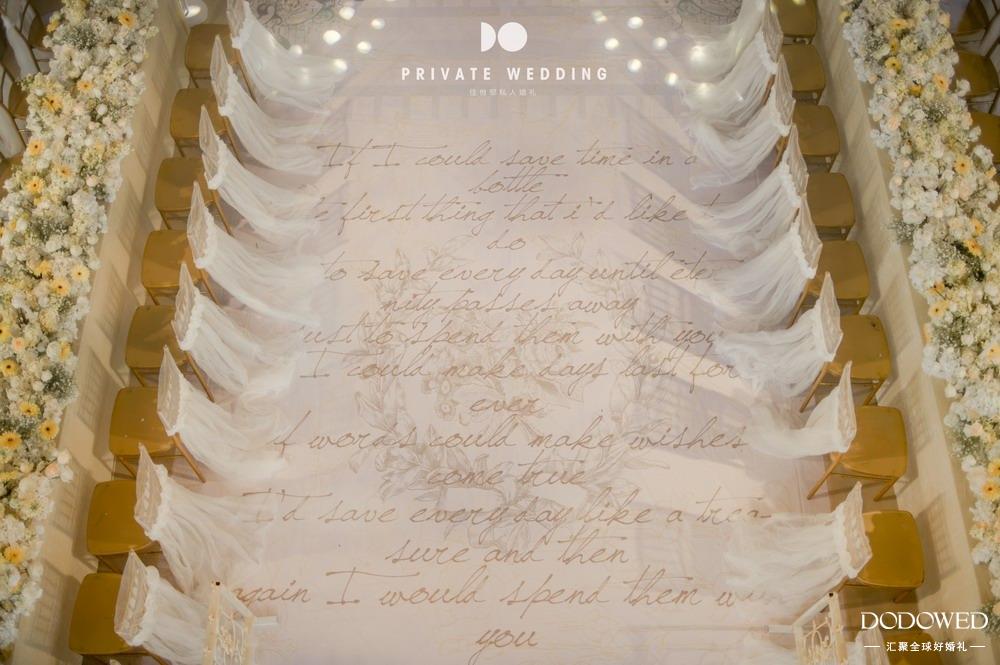 DO
PRIVATE WEDDING
佳偶邸私人婚礼
If I could save time in a
bottle
e first thing that i'd like t
do
to save every day until ete
nity passes away
ust to spend them with you
I could make days last for
ever
f words could make wishes
come true
I'd save every day like a trea-
sure and then
again I would spend them w
you
DODOWED
汇聚全球好婚礼